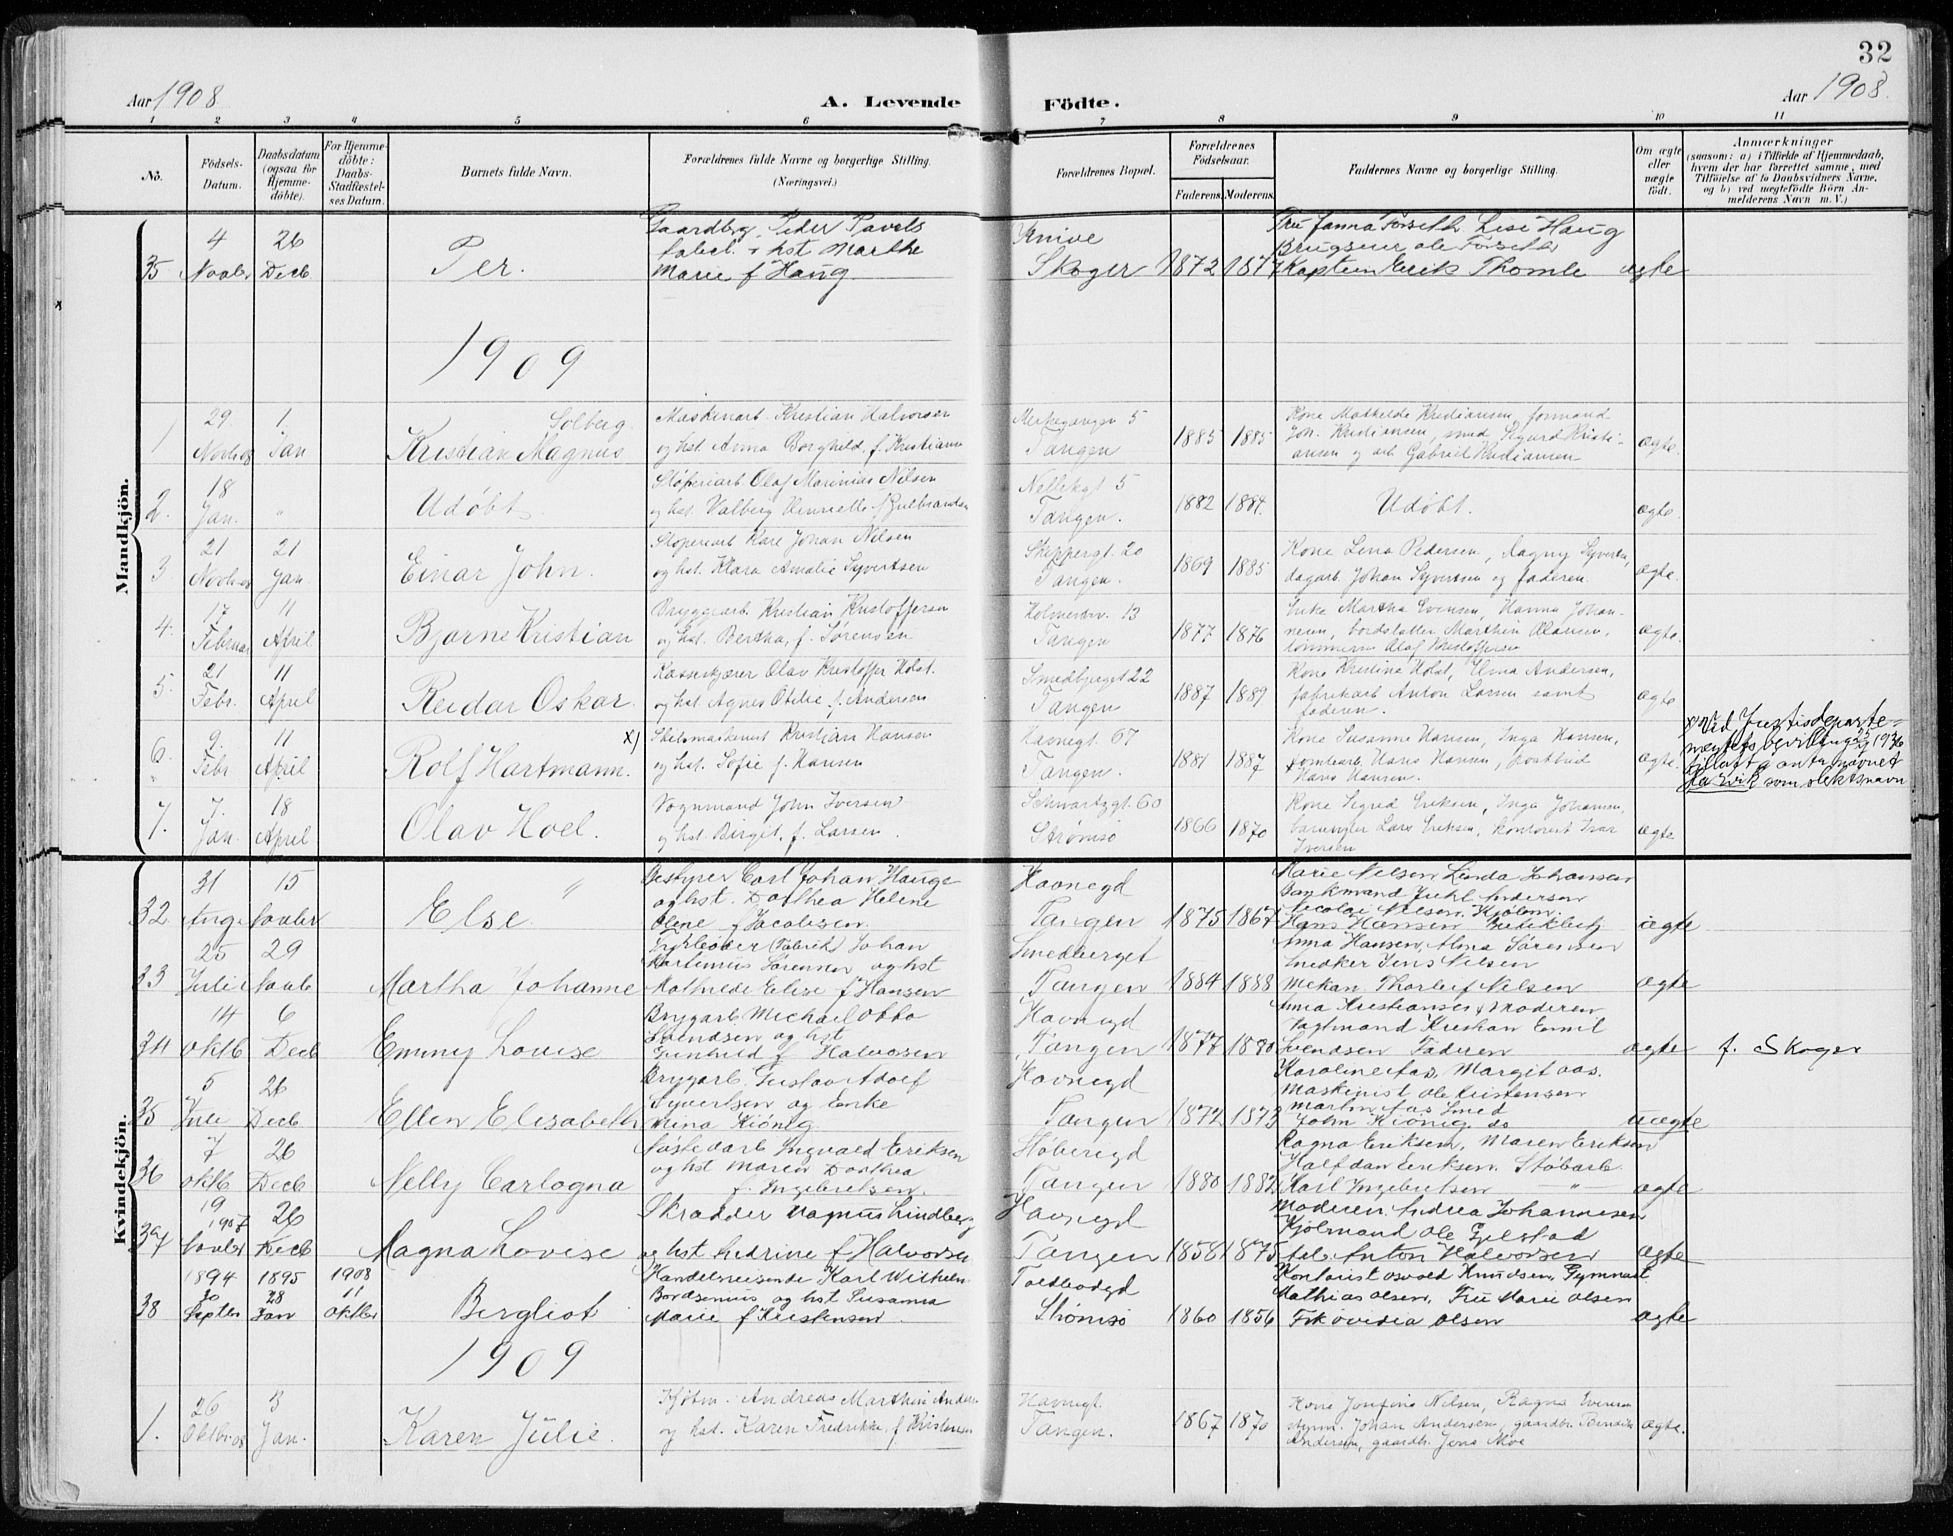 32
Aar 1908 A. Levende Födte. Aar 1908.
1 2 3 4 5 6 7 8 9 10 11
No. Födsels-Datum. Daabsdatum (ogsaa for Hjemme-döbte). For Hjemme-döbte: Daabs-Stadfæstel-ses Datum. Barnets fulde Navn. Forældrenes fulde Navne og borgerlige Stilling. (Næringsvei.) Forældrenes Bopæl. Forældrenes Födselsaar. Faderens. Moderens. Faddernes Navne og borgerlige Stilling. Om ægte eller uægte födt. Anmærkninger (saasom: a) i Tilfælde af Hjemmedaab, hvem der har forrettet samme, med Tilföielse af to Daabsvidners Navne, og b) ved uægtefödte Börn An-melderens Navn m. V.)
Mandkjön.
4 26 Gaardbr. Peder Pavels Knive Fru Janna Forseth Lise Haug
hst Marthe Ole Forseth
35 Novbr Decb Per. Marie f Haug. Skoger 1872 1877 Kaptein Erik Thomle ægte
1909
29 1. Solberg. Maskinarb. Kristian Halvorsen 5 Kone Mathilde Kristiansen, formand
1 Novbr 08 Jan Kristian Magnus og hst. Anna Borghild, f. Kristiansen Tangen 1885 1885 Joh. Kristiansen, smed Sigurd Kristi-
ansen og arb Gabriel Kristiansen ægte.
18 Støperiarb. Olaf Marinius Nilsen 5
2. Jan. " Udöbt og hst. Valborg Henriette f Gulbrandsen Tangen. 1882 1884. Udöbt. ægte.
21 21 Støperiarb Karl Johan Nilsen Skippergt. 20 Kone Lena Pedersen, Dagny Syverts.,
3 Novbr 08 Jan. Einar John. og hst. Klara Amalie Syvertsen Tangen. 1869 1885 dagarb. Johan Syvertsen og faderen. ægte.
17 11 Bryggearb. Kristian Kristoffersen 13 Enke Martha Evensen, Hanna Johan-
4. Februar April Bjarne Kristian og hst. Bertha, f. Sørensen Tangen 1877 1876 nesen, bordstabler Marthin Olausen,
tømmerm Olaf Kristoffersen ægte.
21 11 Olav Kristoffer Holst. Smedbjerget 22 Kone Kristine Holst, Alma Andersen,
5. Febr. April Reidar Oskar. og hst. Agnes Otilie f. Andersen Tangen 1887 1889 fabrikarb Anton Larsen samt
faderen. ægte
9. 11 x) Skibsmaskinist Kristian Hansen Havnegt 67 Kone Susanne Hansen, Inga Hansen,
6. Febr April Rolf Hartmann. og hst. Sofie f. Hansen Tangen. 1881 1887 Hans Hansen, postbud
Hans Hansen. ægte.
x) Ved Justisdeparte-
mentets bevilling 25/ 1936
tillatt å anta navnet
som slektsnavn
7. 18 Vognmand John Iversen Schwartzgt. 60 Kone Sigrid Eriksen, Inga Johansen,
7. Jan. April Olav Hoel. og hst. Birgit, f. Larsen. Strømsö 1866 1870 Lars Eriksen, kontorist Ivar
Iversen ægte
Kvindekjön.
31 15 Bestyrer Carl Johan Hauge Havnegd Marie Nilsen Linda Johansen
og hst. Dorthea Helene Bankmand Juhl Andersen
32 Aug Novbr Else. " Oline f Jacobsen Tangen 1875 1867 Nicolai Nilsen. Kjöbm.
Hans Hansen ægte
25 29 Fyrböder (Fabrik) Johan Smedberget Anna Hansen, Alma Sørensen
Martinius Sørensen og hst Snedker Jens Nilsen
33 Juli Novb Martha Johanne Mathilde Elise f Hansen Tangen 1884 1888 Mekan. Thorleif Nilsen ægte
14 6 Brygarb Michael Otto Havnegd Anna Kristiansen Moderen
Svendsen og hst Vagtmand Kristian Emil
34 Oktb Decb Emmy Lovise Gunhild f Halvorsen Tangen 1877 1880 Svendsen Faderen ægte f. Skoger
5 26 Brygarb. Gustav Adolf Havnegd Karoline Aas, Margit Aas.
Syvertsen og Enke Maskinist Ole Kristensen
35 Juli Decb Ellen Elisabeth Mina Kiönig. Tangen 1872 1873 Martin Aas Smed
John Kiönig do uægte
7 26 Ingvald Eriksen Støberigd Ragna Eriksen, Maren Eriksen
og hst Maren Dorthea Halfdan Eriksen. Stöbarb.
36 Oktb Decb Nelly Carlogna f. Ingebretsen. Tangen 1880 1882 Karl Ingebretsen — " — ægte
19 26 Skrædder Magnus Lindberg Havnegd Moderen. Andrea Johannesen
1907 Ole Gjelstad
37 Novbr Decb Magna Lovise og hst Andrine f Halvorsen Tangen 1858 1875 Anton Halvorsen ægte
1894 1895 1908 Handelsreisende Karl Wilhelm Toldbodgd Kontorist Osvald Knudsen, Gymnast
30 28 11 og hst Susanna Mathias Olsen, Fru Marie Olsen
38 Septbr Jan Oktbr Bergliot Marie f Kristensen. Strømsö 1860 1856 Frk Ovidia Olsen ægte
1909
26 3 Kjøbm. Andreas Marthin Ander- Havnegt. Kone Josefine Nilsen, Ragna Iversen
1. Oktbr. 08 Jan. Karen Julie. og hst. Karen Fredrikke, f Kristensen Tangen. 1867 1870 styrm. Johan Andersen, gaardbr.
Andersen, gaardbr. Jens Moe ægte.